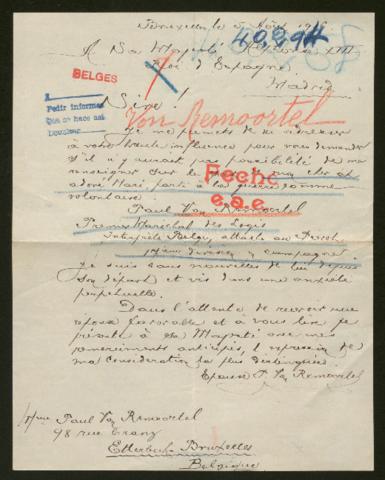 Bruxelles le 5 Août 191
40,294
A Sa Majesté Alphonse XIII
Roi d'Espagne
Madrid
BELGES
Pedir informes
Que se hace así
Sire!
Von Remoortel
Je me permets de m'adresser
à votre haute influence pour vous demander
s'il n'y aurait pas possibilité de me
renseigner sur le mon cher et
adoré Mari, parti à la guerre comme
volontaire.
Fecho
e.a.e.
Paul Van Remoortel
Premier Maréchal des Logis
Interprète Belge, attaché au
division campagne.
Je suis sans nouvelles de lui depuis
son départ et vis dans une anxiété
perpétuelle.
Dans l'attente de recevoir une
réponse favorable et à vous lire je
présente à Sa Majesté avec mes
remerciements anticipés, l'expression de
ma considération la plus distinguée.
Epouse P. Van Remoortel
Mme Paul Van Remoortel
98 rue Gray
Etterbeek Bruxelles
Belgique